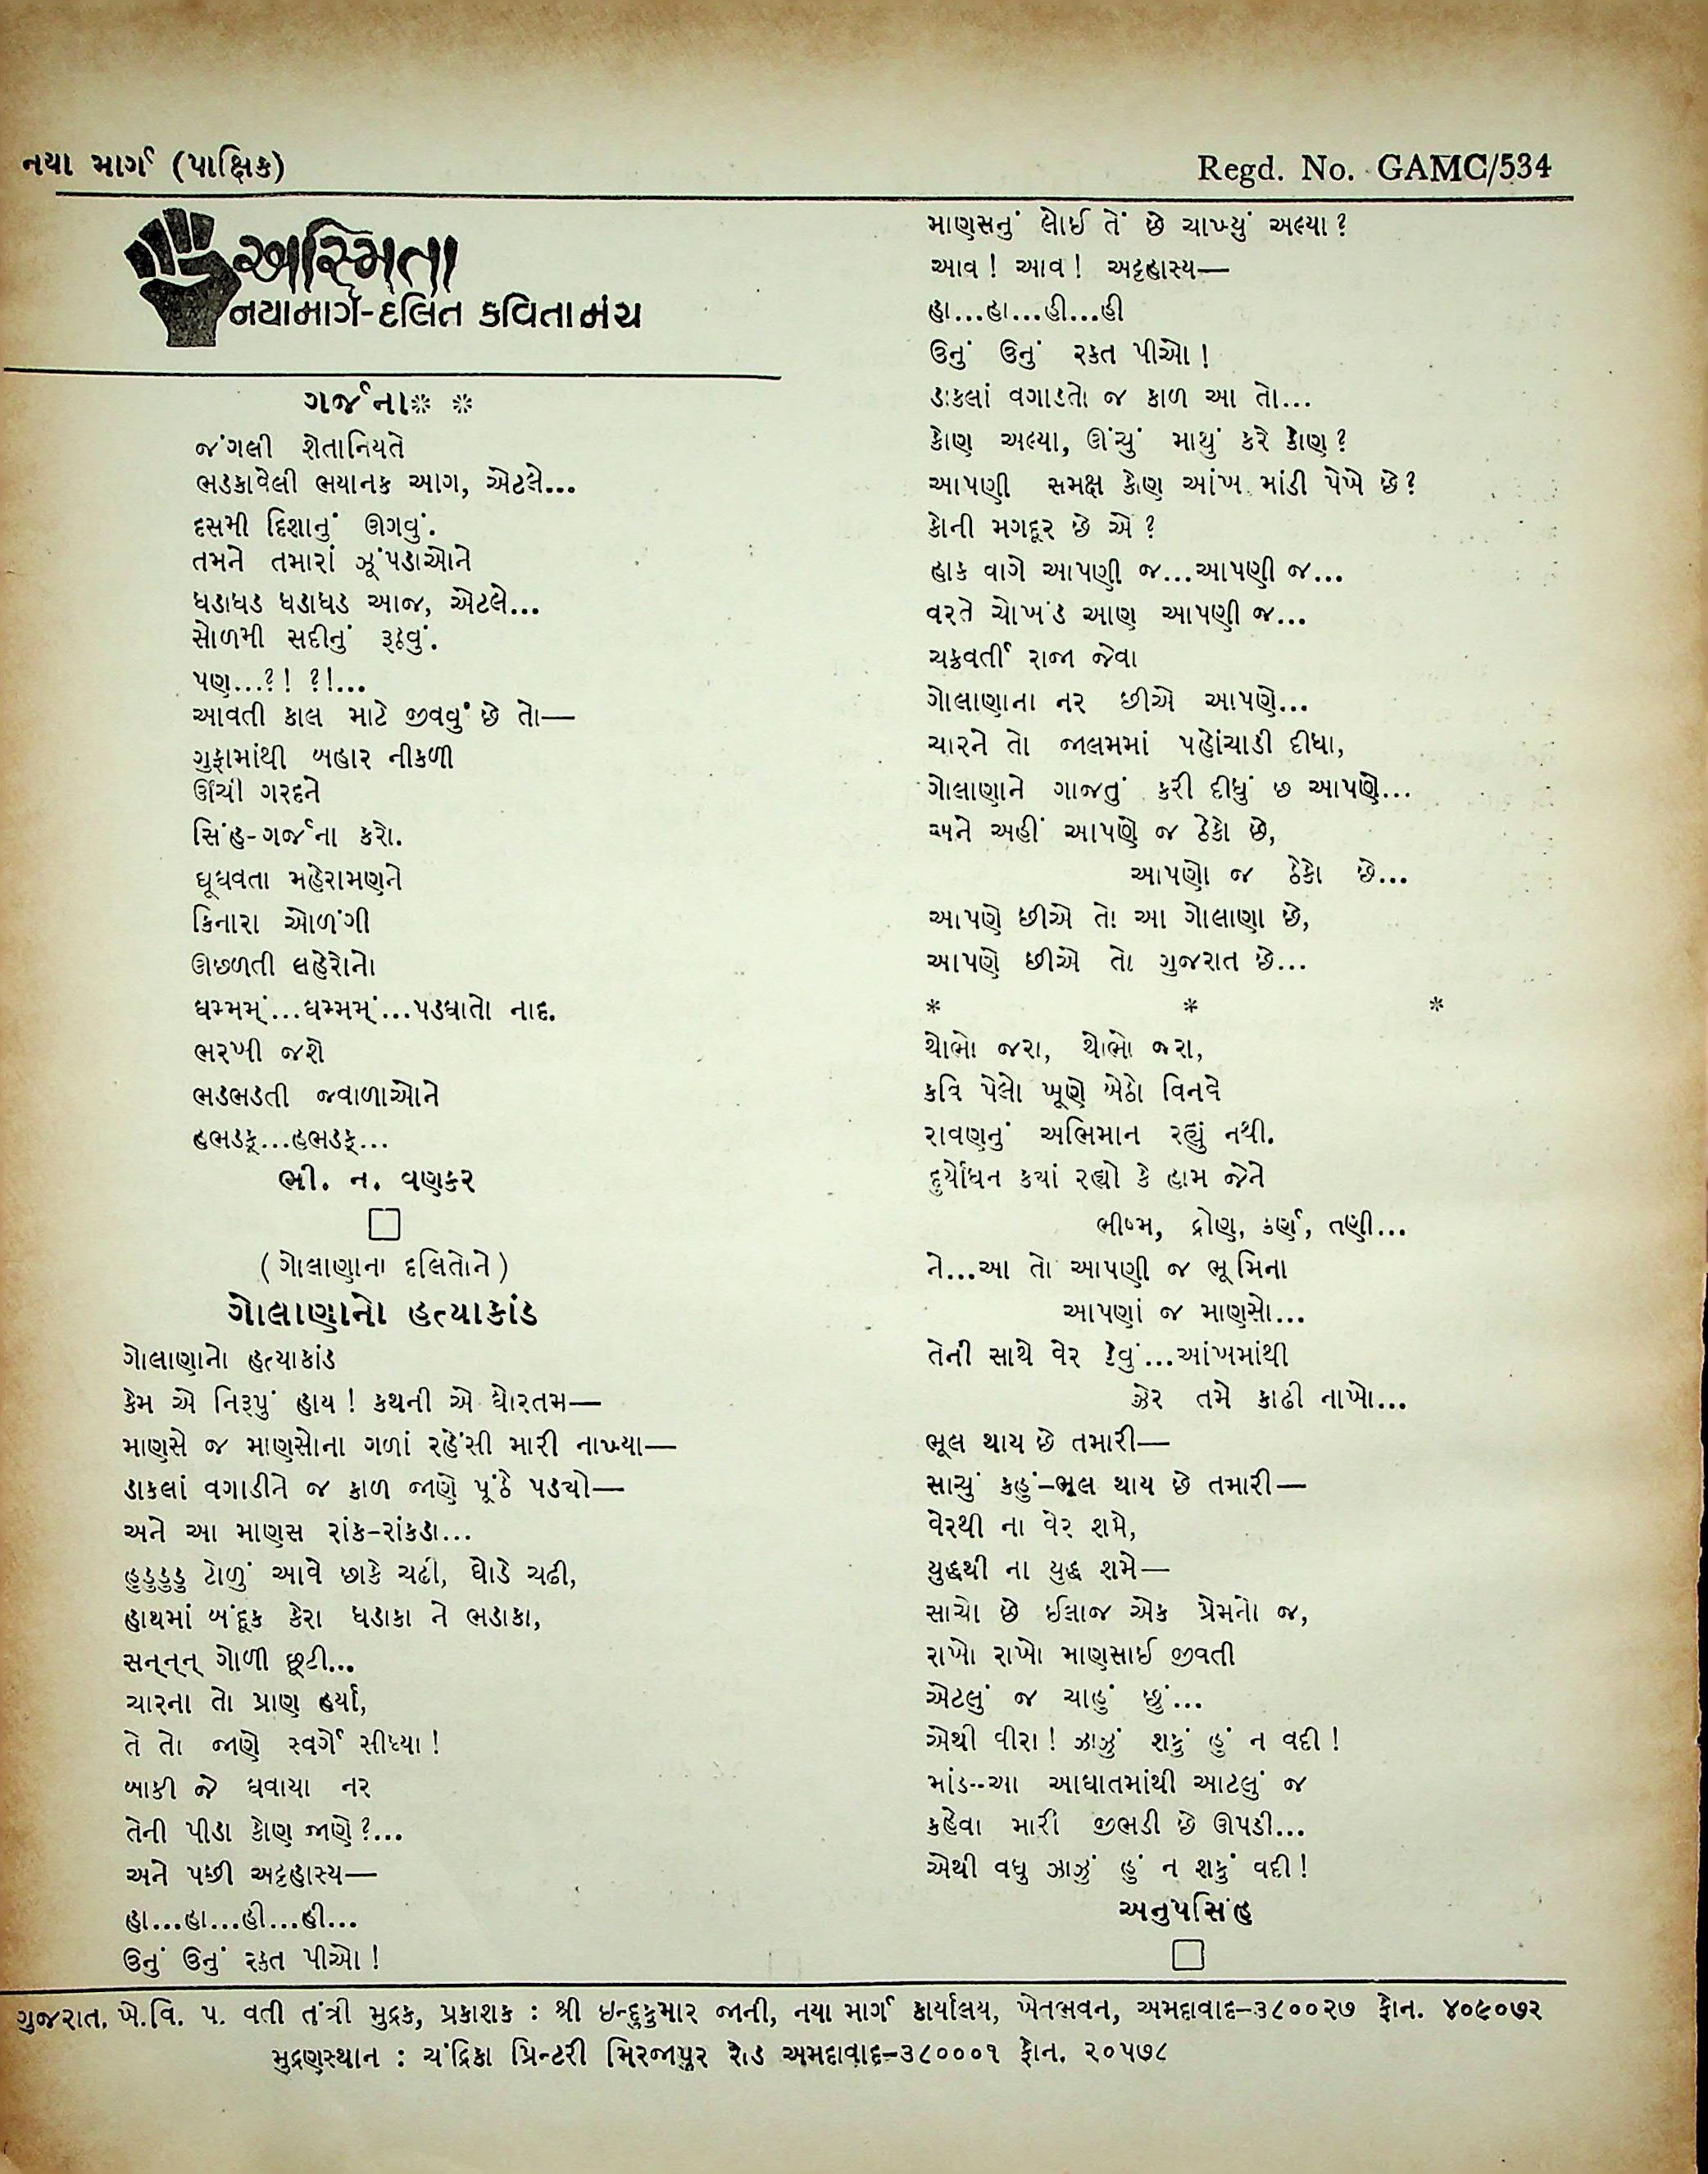 નયા માર્ગ (પાક્ષિક)
Regd. No. GAMC/534
અસ્મિતા
નયામાર્ગ-દલિત કવિતામંચ
ગર્જના* *
જંગલી શેતાનિયતે
ભડકાવેલી ભયાનક આગ, એટલે...
દસમી દિશાનું ઊગવું.
તમને તમારાં ઝૂંપડાઓને
ધડાધડ ધડાધડ આજ, એટલે...
સોળમી સદીનું રૂઠવું.
પણ...?! ?!...
આવતી કાલ માટે જીવવું છે તો—
ગુફામાંથી બહાર નીકળી
ઊંચી ગરદને
સિંહ-ગર્જના કરો.
ઘૂઘવતા મહેરામણને
કિનારા ઓળંગી
ઊછળતી લહેરોનો
ધમ્મમ્...ધમ્મમ્...પડઘાતો નાદ.
ભરખી જશે
ભડભડતી જવાળાઓને
હભડક્...હભડક્...
ભી. ન. વણકર
(ગોલાણાના દલિતોને)
ગોલાણાનો હત્યાકાંડ
ગોલાણાનો હત્યાકાંડ
કેમ એ નિરૂપું હાય! કથની એ ઘોરતમ—
માણસે જ માણસોના ગળાં રહેંસી મારી નાખ્યા—
ડાકલાં વગાડીને જ કાળ જાણે પૂંઠે પડ્યો—
અને આ માણસ રાંક-રાંકડા...
હુડુડુડુ ટોળું આવે છાકે ચઢી, ઘોડે ચઢી,
હાથમાં બંદૂક કેરા ધડાકા ને ભડાકા,
સન્ન્ન્ ગોળી છૂટી...
ચારના તો પ્રાણ હર્યા,
તે તો જાણે સ્વર્ગે સીધ્યા!
બાકી જે ઘવાયા નર
તેની પીડા કોણ જાણે?...
અને પછી અટ્ટહાસ્ય—
હા...હા...હી...હી...
ઉનું ઉનું રક્ત પીઓ!
માણસનું લોઈ તેં છે ચાખ્યું અલ્યા?
આવ! આવ! અટ્ટહાસ્ય—
હા...હા...હી...હી
ઉનું ઉનું રક્ત પીઓ!
ડાકલાં વગાડતો જ કાળ આ તો...
કોણ અલ્યા, ઊંચું માથું કરે કોણ?
આપણી સમક્ષ કોણ આંખ માંડી પેખે છે?
કોની મગદૂર છે એ?
હાક વાગે આપણી જ...આપણી જ...
વરતે ચોખંડ આણ આપણી જ...
ચક્રવર્તી રાજા જેવા
ગોલાણાના નર છીએ આપણે...
ચારને તો જાલમમાં પહોંચાડી દીધા,
ગોલાણાને ગાજતું કરી દીધું છ આપણે...
અને અહીં આપણે જ ઠેકો છે,
આપણો જ ઠેકો છે...
આપણે છીએ તો આ ગોલાણા છે,
આપણે છીએ તો ગુજરાત છે...
* * *
થોભો જરા, થોભો જરા,
કવિ પેલો ખૂણે બેઠો વિનવે
રાવણનું અભિમાન રહ્યું નથી.
દુર્યોધન કયાં રહ્યો કે હામ જેને
ભીષ્મ, દ્રોણ, કર્ણ, તણી...
ને...આ તો આપણી જ ભૂમિના
આપણાં જ માણસો...
તેની સાથે વેર કેવું...આંખમાંથી
ઝેર તમે કાઢી નાખો...
ભૂલ થાય છે તમારી—
સાચું કહું-ભૂલ થાય છે તમારી—
વેરથી ના વેર શમે,
યુદ્ધથી ના યુદ્ધ શમે—
સાચો છે ઈલાજ એક પ્રેમનો જ,
રાખો રાખો માણસાઈ જીવતી
એટલું જ ચાહું છું...
એથી વીરા! ઝાઝું શકું હું ન વદી!
માંડ--આ આઘાતમાંથી આટલું જ
કહેવા મારી જીભડી છે ઊપડી...
એથી વધુ ઝાઝું હું ન શકું વદી!
અનુપસિંહ
ગુજરાત. ખે.વિ. પ. વતી તંત્રી મુદ્રક, પ્રકાશક : શ્રી ઇન્દુકુમાર જાની, નયા માર્ગ કાર્યાલય, ખેતભવન, અમદાવાદ-૩૮૦૦૨૭ ફોન. ૪૦૯૦૭૨
મુદ્રણસ્થાન : ચંદ્રિકા પ્રિન્ટરી મિરજાપુર રોડ અમદાવાદ-૩૮૦૦૦૧ ફોન. ૨૦૫૭૮